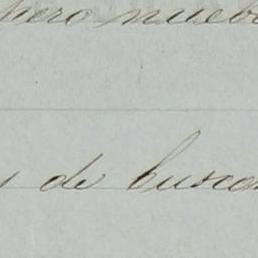 pero nueb
s de buscar